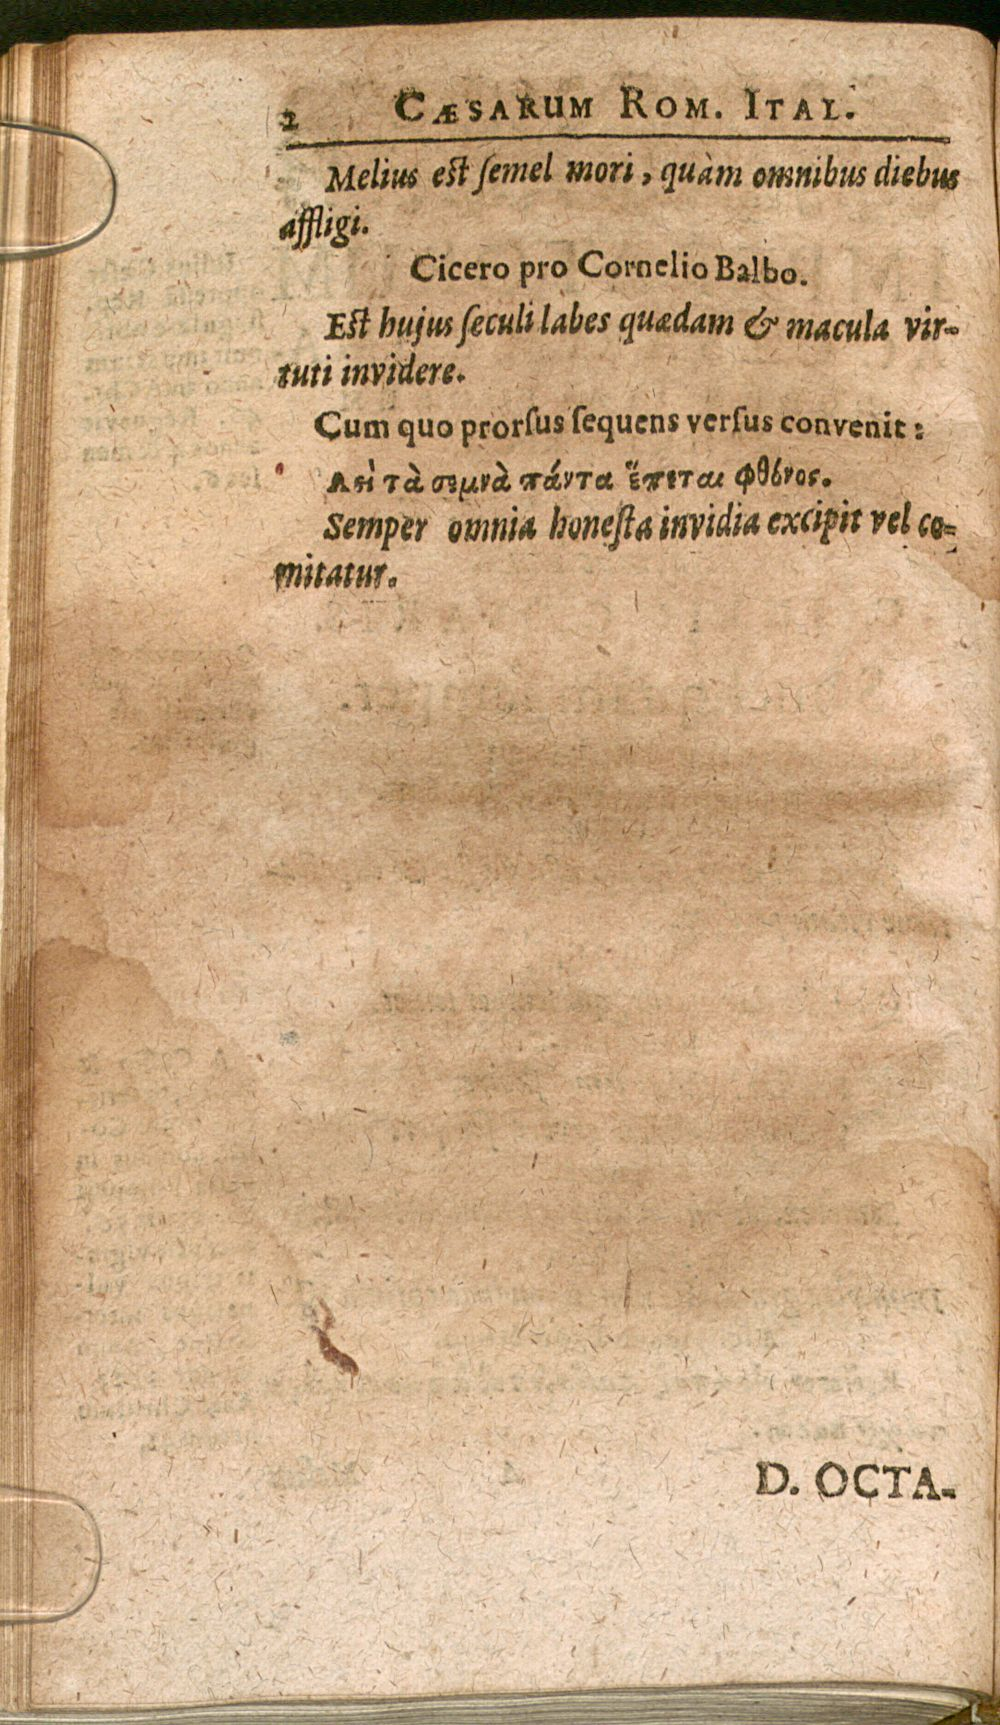 2 CÆSARUM ROM. ITAL.
Melius est ſemel mori, quàm omnibus diebus
affligi.
Cicero pro Cornelio Balbo.
Est hujus ſeculi labes quædam & macula vir-
tuti invidere.
Cum quo prorſus ſequens verſus convenit:
Αεὶ τὰ σεμνὰ πάντα ἕπεται φθόνος.
Semper omnia honeſta invidia excipit vel co-
mitatur.
D. OCTA-